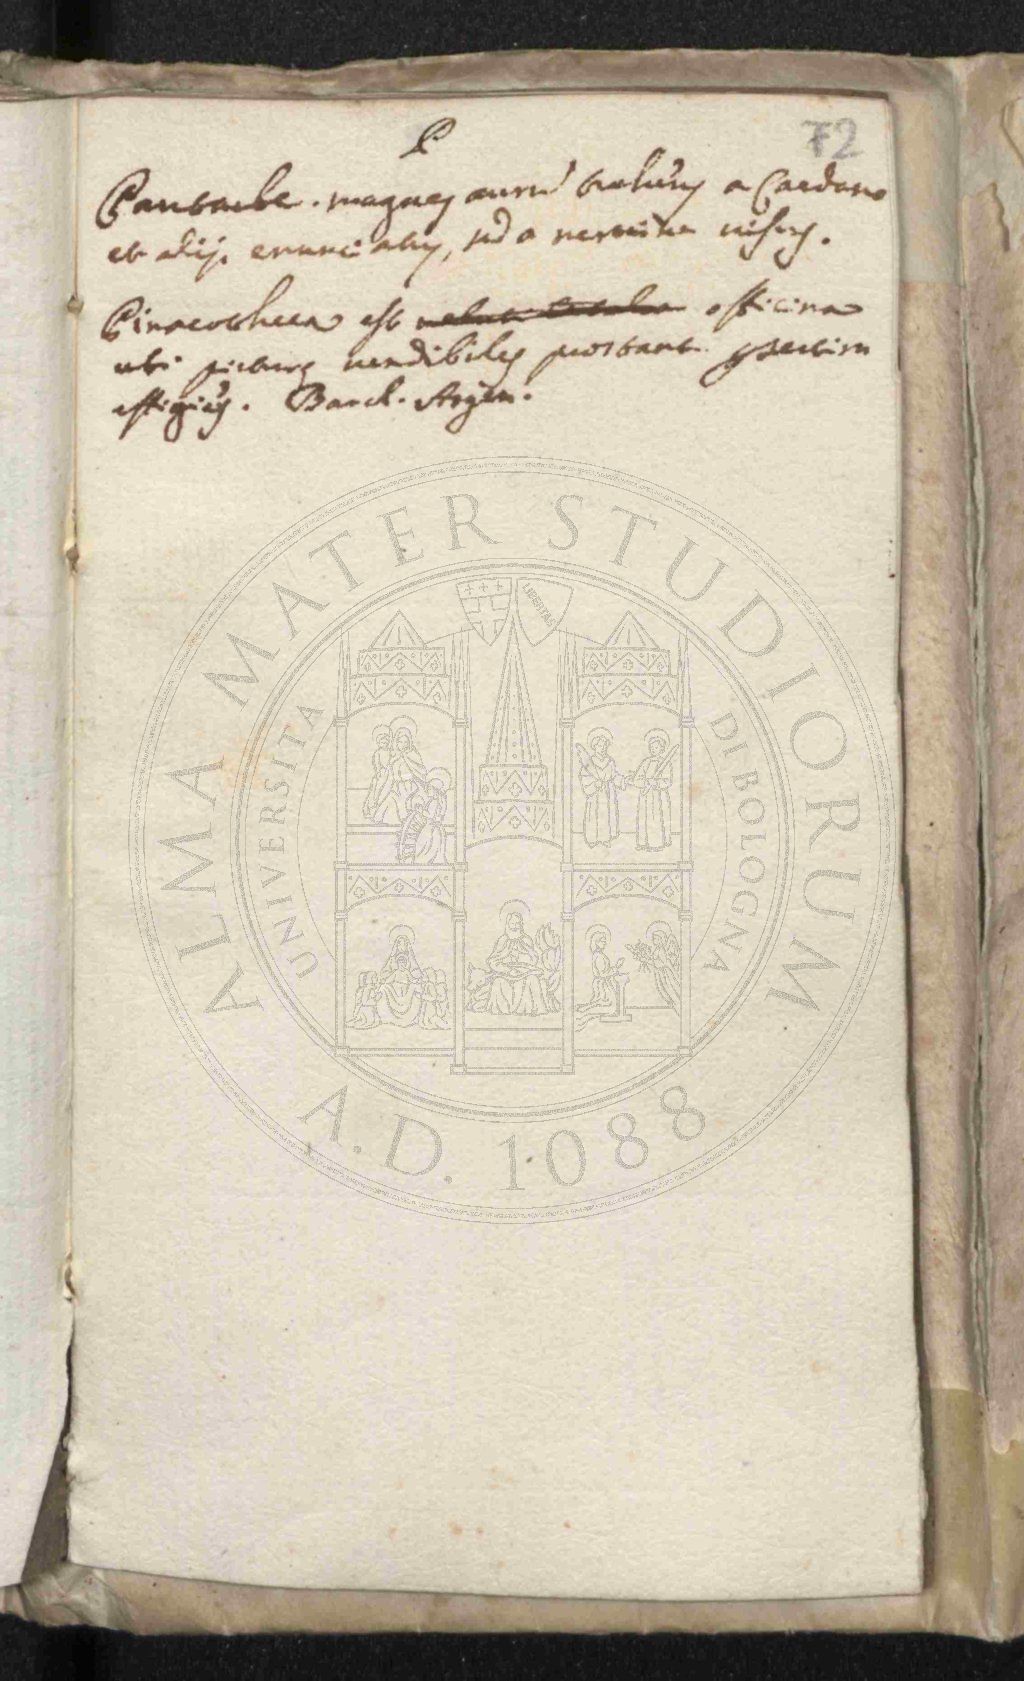 P
72
Pantarbe. magnes aurum trahens a Cardano
et alijs enunciatus, sed a nemine visus.
Pinacotheca est officina
ubi picturae vendibiles prostant
effigies. Barcl. Argen.
ALMA MATER STUDIORUM
UNIVERSITA DI BOLOGNA
LIBERTAS
A.D. 1088